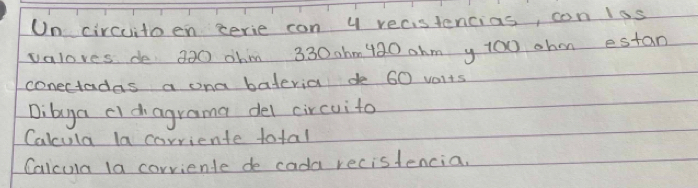 Un circuito en cerie con 4 recistencias, con los
valores de 220 ohm 330 ohm 420 ohm y 100 ohm estan
conectadas a una bateria de 60 volts
Dibuja el diagrama del circuito
Calcula la corriente total
Calcula la corriente de cada recistencia.